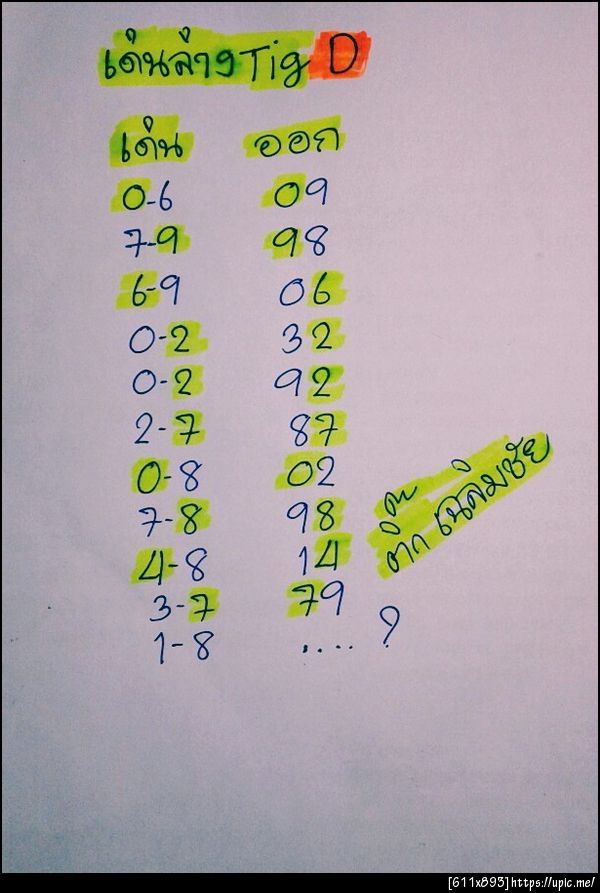 เด่นล่าง Tig D
เด่น ออก
0-6 09
7-9 98
6-9 06
0-2 32
0-2 92
2-7 87
0-8 02
7-8 98
4-8 14
3-7 79
1-8 .... ?
ติ๊ก เฉลิมชัย
[611x893]https://upic.me/